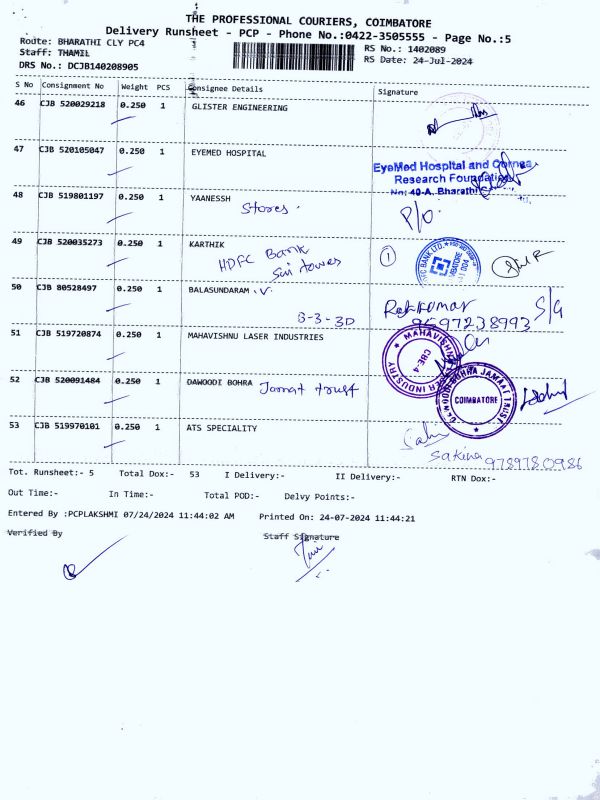 THE PROFESSIONAL COURIERS, COIMBATORE
Delivery Runsheet - PCP - Phone No.:0422-3505555 - Page No.:5
Route: BHARATHI CLY PC4
Staff: THAMIL
DRS No.: DCJB140208905
RS No.: 1402089
RS Date: 24-Jul-2024
S No Consignment No Weight PCS Consignee Details Signature
46 CJB 520029218 0.250 1 GLISTER ENGINEERING
47 CJB 520105047 0.250 1 EYEMED HOSPITAL
EyeMed Hospital and Cornea
Research Foundation
No: 40-A, Bharathi
48 CJB 519801197 0.250 1 YAANESSH
Stores. P/o.
49 CJB 520035273 0.250 1 KARTHIK
HDFC Bank
Sui towers
1
50 CJB 80528497 0.250 1 BALASUNDARAM .V.
B-3-3D
S/G
51 CJB 519720874 0.250 1 MAHAVISHNU LASER INDUSTRIES
CBE-4
52 CJB 520091484 0.250 1 DAWOODI BOHRA Jamat trust
DAWOODI BOHRA JAMAAT TRUST
COIMBATORE
53 CJB 519970101 0.250 1 ATS SPECIALITY
Sakina 9789780986
Tot. Runsheet:- 5 Total Dox:- 53 I Delivery:- II Delivery:- RTN Dox:-
Out Time:- In Time:- Total POD:- Delvy Points:-
Entered By :PCPLAKSHMI 07/24/2024 11:44:02 AM Printed On: 24-07-2024 11:44:21
Verified By Staff Signature